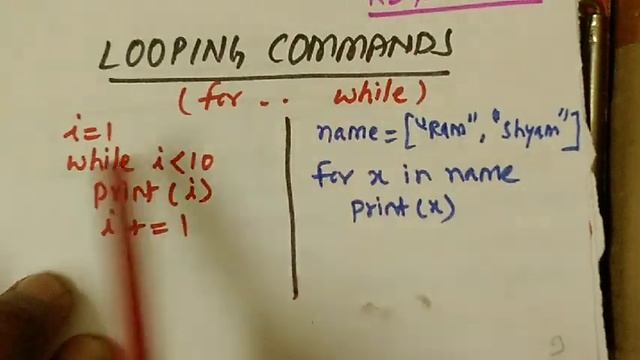 LOOPING COMMANDS
(for .. while)
i=1
while i<10
print(i)
i += 1
name=["Ram", "Shyam"]
for x in name
print(x)